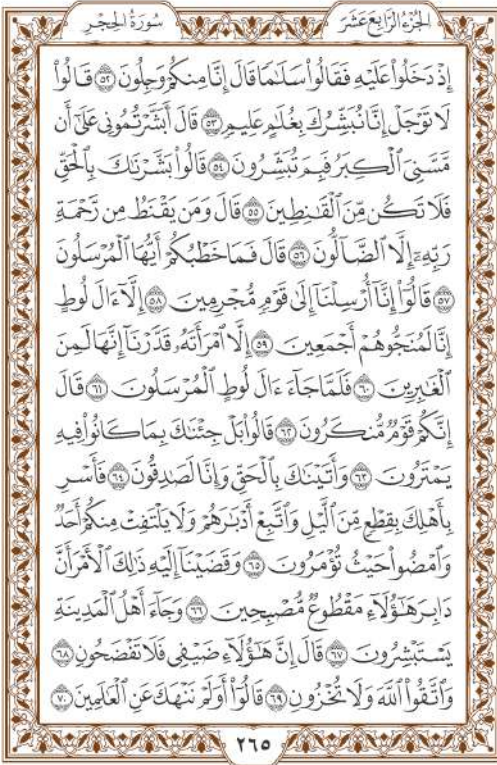 الجزء الرابع عشر
سورة الحجر
إِذۡ دَخَلُواْ عَلَيۡهِ فَقَالُواْ سَلَٰمٗا قَالَ إِنَّا مِنكُمۡ وَجِلُونَ ٥٢ قَالُواْ
لَا تَوۡجَلۡ إِنَّا نُبَشِّرُكَ بِغُلَٰمٍ عَلِيمٖ ٥٣ قَالَ أَبَشَّرۡتُمُونِي عَلَىٰٓ أَن
مَّسَّنِيَ ٱلۡكِبَرُ فَبِمَ تُبَشِّرُونَ ٥٤ قَالُواْ بَشَّرۡنَٰكَ بِٱلۡحَقِّ
فَلَا تَكُن مِّنَ ٱلۡقَٰنِطِينَ ٥٥ قَالَ وَمَن يَقۡنَطُ مِن رَّحۡمَةِ
رَبِّهِۦٓ إِلَّا ٱلضَّآلُّونَ ٥٦ قَالَ فَمَا خَطۡبُكُمۡ أَيُّهَا ٱلۡمُرۡسَلُونَ
٥٧ قَالُوٓاْ إِنَّآ أُرۡسِلۡنَآ إِلَىٰ قَوۡمٖ مُّجۡرِمِينَ ٥٨ إِلَّآ ءَالَ لُوطٍ
إِنَّا لَمُنَجُّوهُمۡ أَجۡمَعِينَ ٥٩ إِلَّا ٱمۡرَأَتَهُۥ قَدَّرۡنَآ إِنَّهَا لَمِنَ
ٱلۡغَٰبِرِينَ ٦٠ فَلَمَّا جَآءَ ءَالَ لُوطٍ ٱلۡمُرۡسَلُونَ ٦١ قَالَ
إِنَّكُمۡ قَوۡمٞ مُّنكَرُونَ ٦٢ قَالُواْ بَلۡ جِئۡنَٰكَ بِمَا كَانُواْ فِيهِ
يَمۡتَرُونَ ٦٣ وَأَتَيۡنَٰكَ بِٱلۡحَقِّ وَإِنَّا لَصَٰدِقُونَ ٦٤ فَأَسۡرِ
بِأَهۡلِكَ بِقِطۡعٖ مِّنَ ٱلَّيۡلِ وَٱتَّبِعۡ أَدۡبَٰرَهُمۡ وَلَا يَلۡتَفِتۡ مِنكُمۡ أَحَدٞ
وَٱمۡضُواْ حَيۡثُ تُؤۡمَرُونَ ٦٥ وَقَضَيۡنَآ إِلَيۡهِ ذَٰلِكَ ٱلۡأَمۡرَ أَنَّ
دَابِرَ هَٰٓؤُلَآءِ مَقۡطُوعٞ مُّصۡبِحِينَ ٦٦ وَجَآءَ أَهۡلُ ٱلۡمَدِينَةِ
يَسۡتَبۡشِرُونَ ٦٧ قَالَ إِنَّ هَٰٓؤُلَآءِ ضَيۡفِي فَلَا تَفۡضَحُونِ ٦٨
وَٱتَّقُواْ ٱللَّهَ وَلَا تُخۡزُونِ ٦٩ قَالُوٓاْ أَوَلَمۡ نَنۡهَكَ عَنِ ٱلۡعَٰلَمِينَ ٧٠
٢٦٥